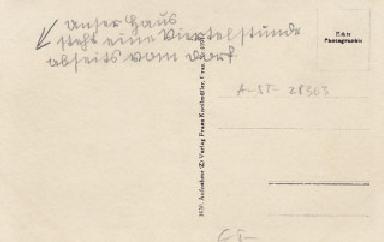 Unser Haus
steht eine Viertelstunde
abseits vom Dorf.
Echte
Photographie
A-ST- 28303
Aufnahme u. Verlag Franz Knollmüller, Graz